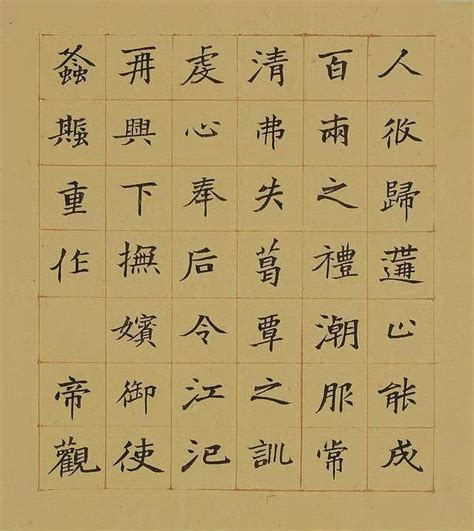 人攸歸遘止能成
百兩之禮潮服常
清弗失葛覃之訓
虔心奉后令江汜
再興下撫嬪御使
螽重作 帝觀